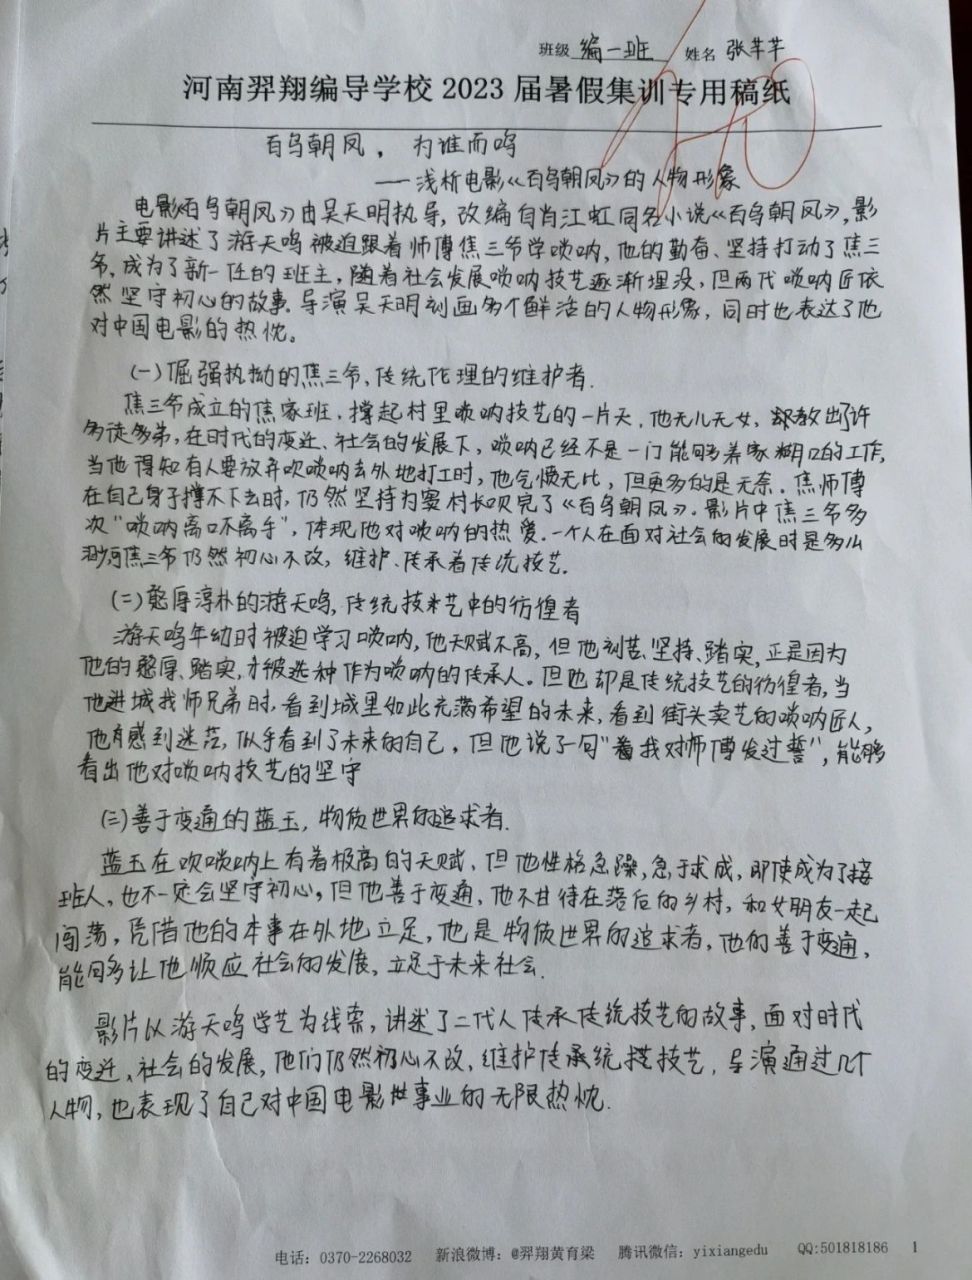 班级 编一班 姓名 张芊芊
河南羿翔编导学校 2023 届暑假集训专用稿纸
百鸟朝凤，为谁而鸣
——浅析电影《百鸟朝凤》的人物形象
电影《百鸟朝凤》由吴天明执导，改编自肖江虹同名小说《百鸟朝凤》，影
片主要讲述了游天鸣被迫跟着师傅焦三爷学唢呐，他的勤奋、坚持打动了焦三
爷，成为了新一任的班主，随着社会发展唢呐技艺逐渐埋没，但两代唢呐匠依
然坚守初心的故事。导演吴天明刻画多个鲜活的人物形象，同时也表达了他
对中国电影的热忱。
(一)倔强执拗的焦三爷，传统伦理的维护者.
焦三爷成立的焦家班，撑起村里唢呐技艺的一片天，他无儿无女，却教出了许
多徒弟，在时代的变迁、社会的发展下，唢呐已经不是一门能够养家糊口的工作，
当他得知有人要放弃吹唢呐去外地打工时，他气愤无比，但更多的是无奈。焦师傅
在自己身子撑不下去时，仍然坚持为窦村长吹完了《百鸟朝凤》。影片中焦三爷多
次"唢呐离口不离手"，体现他对唢呐的热爱。一个人在面对社会的发展时是多么
渺河焦三爷仍然初心不改，维护、传承着传统技艺.
(二)憨厚淳朴的游天鸣，传统技艺中的彷徨者
游天鸣年幼时被迫学习唢呐，他天赋不高，但他刻苦、坚持、踏实，正是因为
他的憨厚、踏实，才被选种作为唢呐的传承人。但他却是传统技艺的彷徨者，当
他进城找师兄弟时，看到城里如此充满希望的未来，看到街头卖艺的唢呐匠人，
他有感到迷茫，似乎看到了未来的自己，但他说了一句"我对师傅发过誓"，能够
看出他对唢呐技艺的坚守
(三)善于变通的蓝玉，物质世界的追求者.
蓝玉在吹唢呐上有着极高的天赋，但他性格急躁，急于求成，即使成为了接
班人，也不一定会坚守初心，但他善于变通，他不甘待在落后的乡村，和女朋友一起
闯荡，凭借他的本事在外地立足，他是物质世界的追求者，他的善于变通，
能够让他顺应社会的发展，立足于未来社会.
影片以游天鸣学艺为线索，讲述了二代人传承传统技艺的故事，面对时代
的变迁、社会的发展，他们仍然初心不改，维护传承统技艺，导演通过几个
人物，也表现了自己对中国电影事业的无限热忱.
电话：0370-2268032 新浪微博：@羿翔黄育梁 腾讯微信：yixiangedu QQ:501818186 1